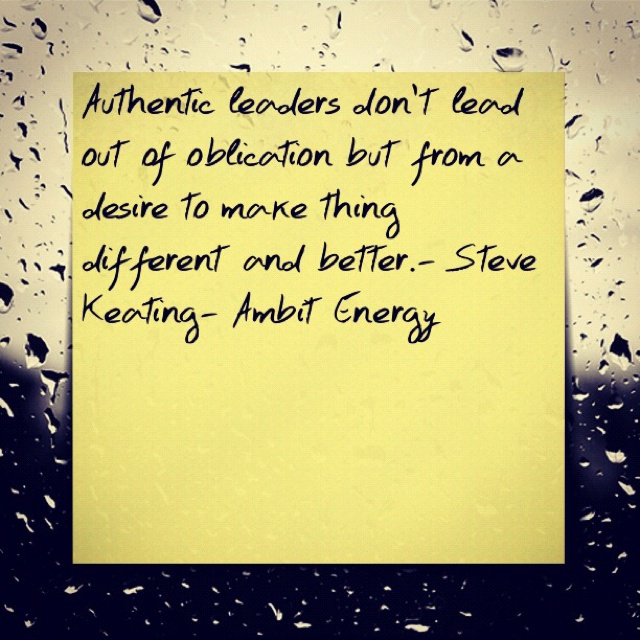 Authentic leaders don't lead
out of oblication but from a
desire to make thing
different and better.- Steve
Keating- Ambit Energy